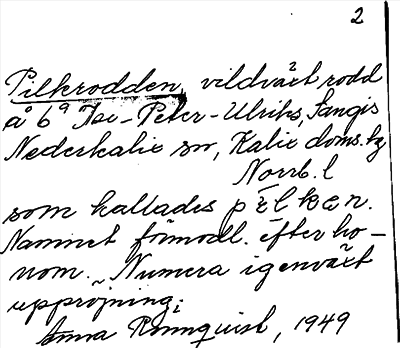 2
Pilkrodden, vildväxt rodd
å 6⁹ Jse-Peter-Ulriks, Sangis
Nederkalix sn, Kalix doms. tg
Norrb. l
som kallades pilken.
Namnet förmodl. efter ho-
nom. Numera igenväxt
uppröjning.
Anna Rönnquist, 1949